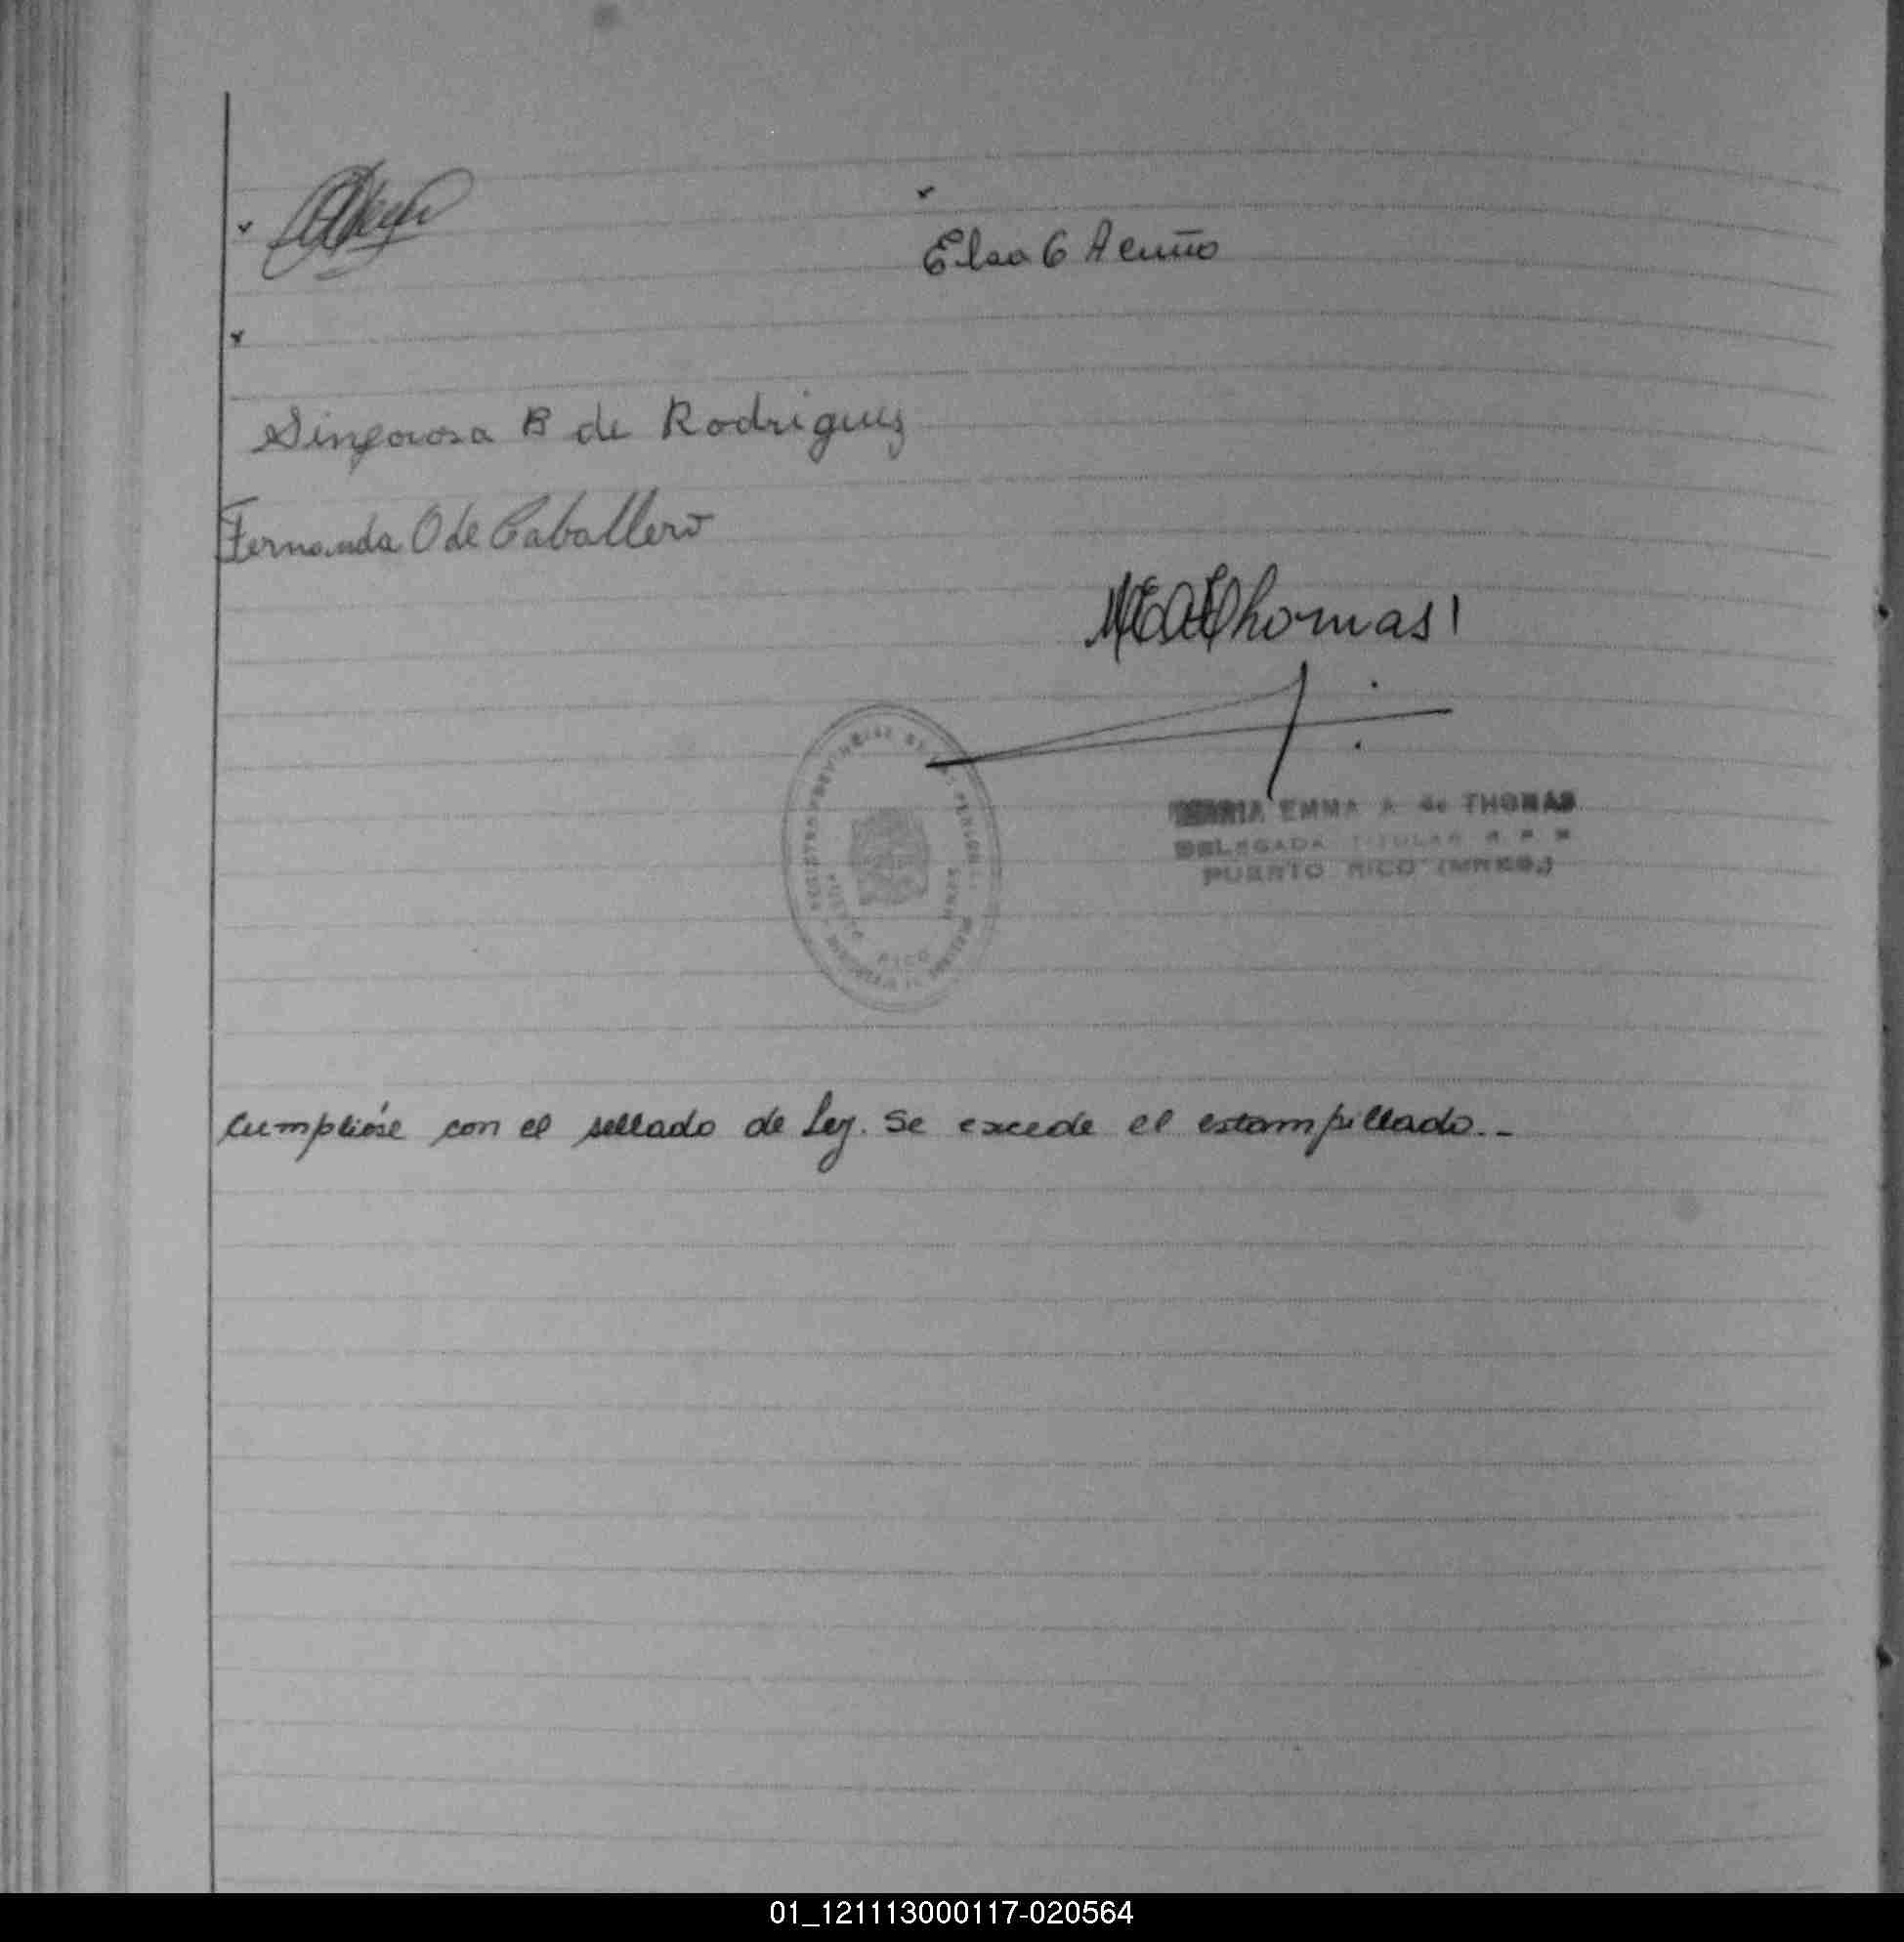 Elsa G Acuña
Sinforosa B de Rodriguez
Fernanda O de Caballero
MEAThomas
MARIA EMMA A de THOMAS
DELEGADA TITULAR R P P
PUERTO RICO (MNES.)
PUERTO RICO
Cumplióse con el sellado de Ley. Se excede el estampillado.-
01_121113000117-020564